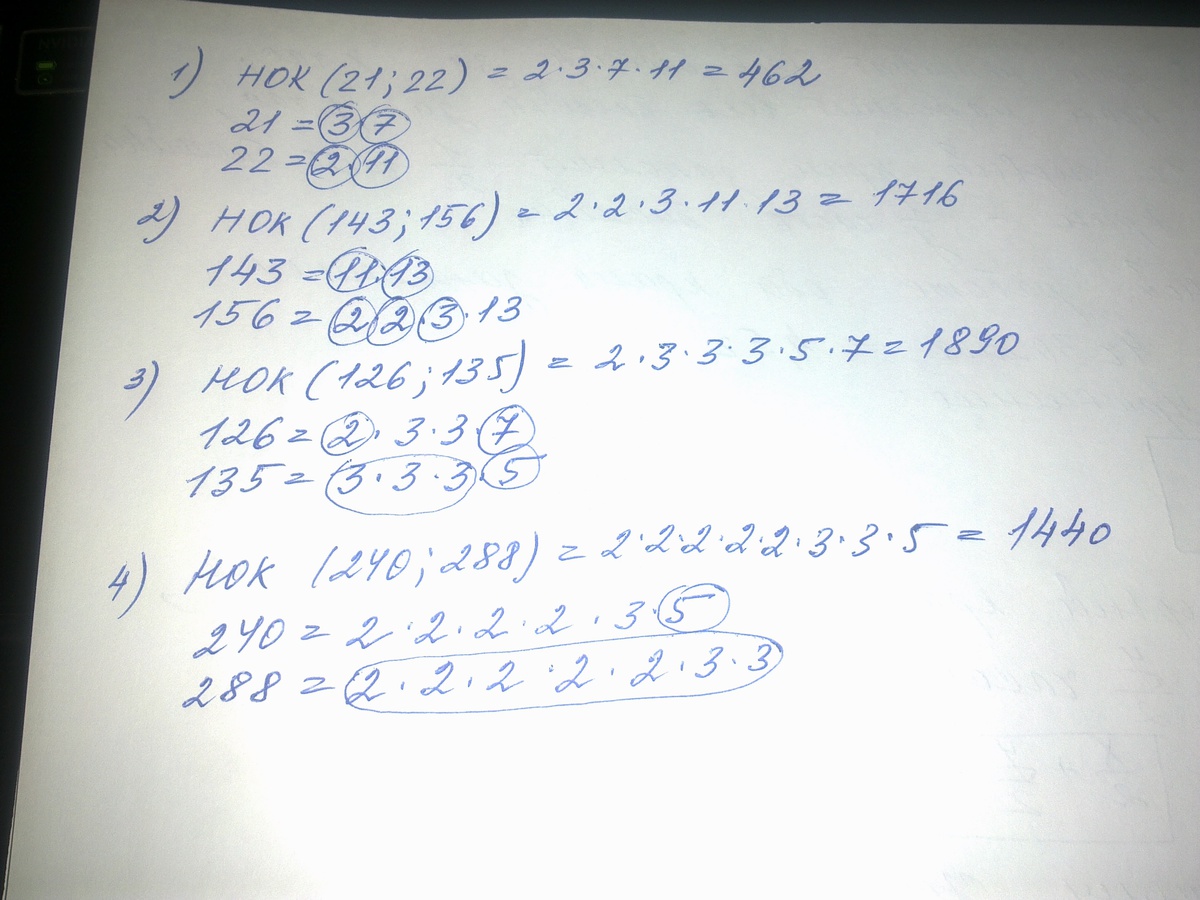 1) НОК (21; 22) = 2·3·7·11 = 462
21 = 3·7
22 = 2·11
2) НОК (143; 156) = 2·2·3·11·13 = 1716
143 = 11·13
156 = 2·2·3·13
3) НОК (126; 135) = 2·3·3·3·5·7 = 1890
126 = 2·3·3·7
135 = 3·3·3·5
4) НОК (240; 288) = 2·2·2·2·2·3·3·5 = 1440
240 = 2·2·2·2·3·5
288 = 2·2·2·2·2·3·3